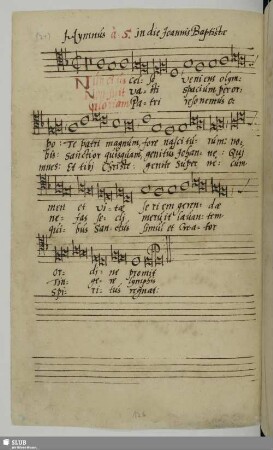 Hymnus à 5. in die Joannis Baptistæ
Nuntius cel so veniens olym
Non fuit va sti spacium per or
Gloriam Pa tri resonemus o
po Te patri magnum fore nasci tu rum no
bis Sanctior quisquam genitus Johan ne Qui
mnes Et tibi Christe genite Super ne cum
men et vi tæ se ri em geren dæ
ne fas se cli meruit la uan tem
qui bus San ctus simul et Crea tor
or di ne promit
tin ge re lymphis
Spi ri tus regnat
SLUB